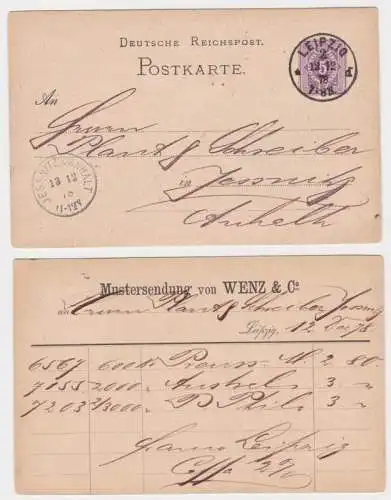 DEUTSCHE REICHSPOST.
POSTKARTE.
LEIPZIG
2
13 12
78
7-8V.
An
Herrn
Plant & Schreiber
in Jessnitz
Anhalt
JESSNITZ ANHALT
13 12
11-12V
Mustersendung von WENZ & Co
an Herrn Plant & Schreiber Jessnitz
Leipzig, 12 Dec 78
6567 600 Preuss. M 2 80.
7155 2000 " Austral 3 "
7203 2/3000 " 3 "
franco Leipzig
2%